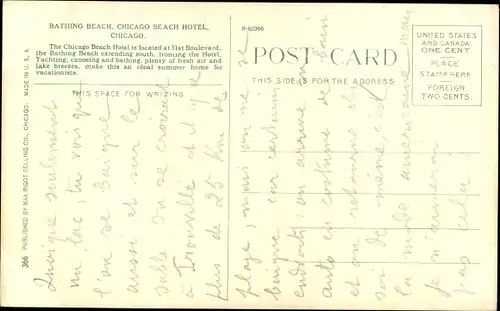 BATHING BEACH, CHICAGO BEACH HOTEL,
CHICAGO.
The Chicago Beach Hotel is located at 51st Boulevard,
the Bathing Beach extending south, fronting the Hotel.
Yachting, canoeing and bathing, plenty of fresh air and
lake breezes, make this an ideal summer home for
vacationists.
THIS SPACE FOR WRITING
R-60366
POST CARD
THIS SIDE IS FOR THE ADDRESS
UNITED STATES
AND CANADA
ONE CENT
PLACE
STAMP HERE
FOREIGN
TWO CENTS.
366 PUBLISHED BY MAX RIGOT SELLING CO., CHICAGO. MADE IN U. S. A.
Quoique seulement
un lac, tu vois que
l'on se baigne
aussi et sur le
sable on se croirait
à Trouville et il y a
plus de 25 Km de
plage, mais on ne se
baigne que certains
endroits: on arrive en
auto en costume de bain
et on retourne chez
soi de même c'est
la mode américaine mais
je n'aimerai
pas cela!